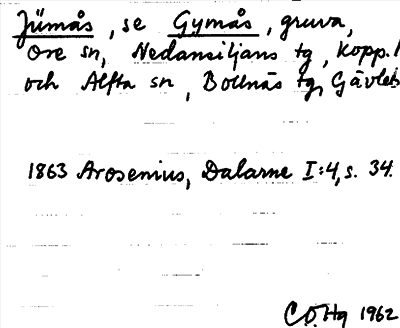 Jümås, se Gymås, gruva,
Ore sn, Nedansiljans tg, Kopp.l
och Alfta sn, Bollnäs tg, Gävleb
1863 Arosenius, Dalarne I:4, s. 34.
C.O.Hg 1962